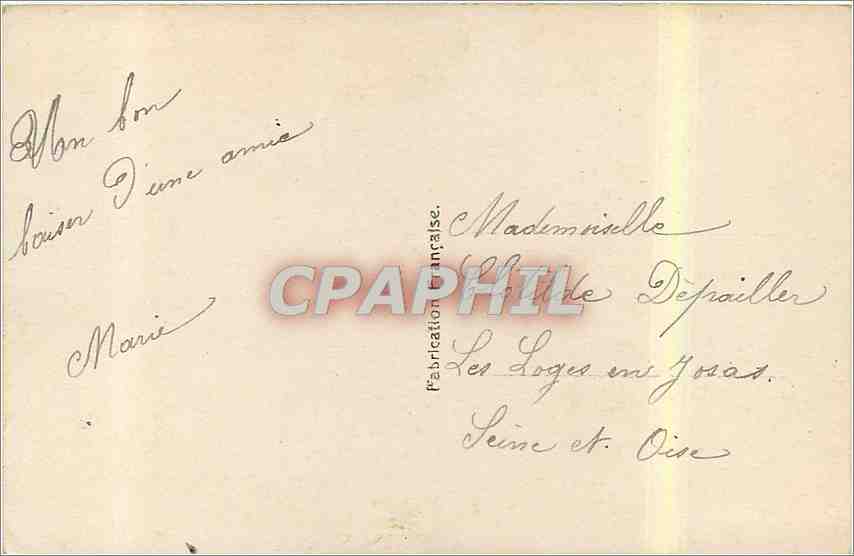 Un bon
baiser d'une amie
Marie
Fabrication Française.
Mademoiselle
Clotilde Dépailler
Les Loges en Josas.
Seine et Oise
CPAPHIL